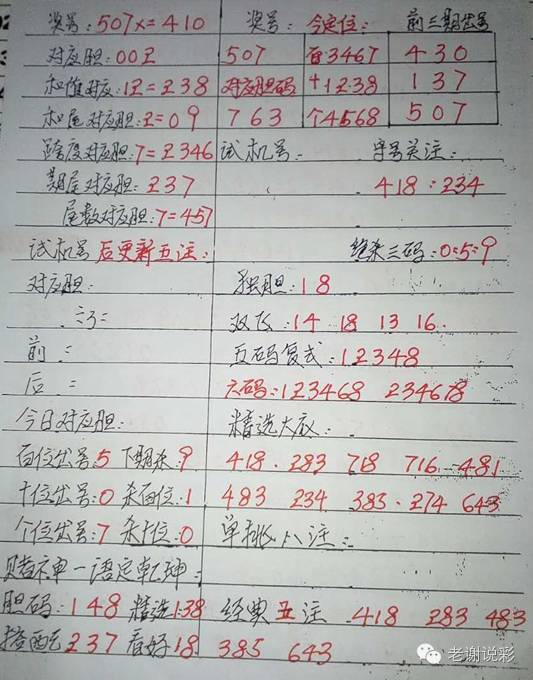 奖号:507x=410 奖号: 今定位: 前三期出号
对应胆:00Z 507 百3467 430
和值对应:12=238 对应胆码 十1238 137
和尾对应胆:2=09 763 个4568 507
跨度对应胆:7=2346 试机号: 字号关注:
期尾对应胆:237 418:234
尾数对应胆:7=457
试机号后更新五注: 绝杀三码:0:5:9
对应胆: 独胆:18
双飞:14 18 13 16.
前: 五码复式:12348
后: 六码:123468 234678
今日对应胆: 精选大底:
百位出号:5 下期杀:9 418. 283 718 716 481
十位出号:0 杀百位:1 483 234 383. 274 643
个位出号:7 杀十位:0 单挑八注:
赌神一语定乾坤:
胆码:148 精选:138 经典五注 418 283 483
搭配237 看好18 385 643
老谢说彩